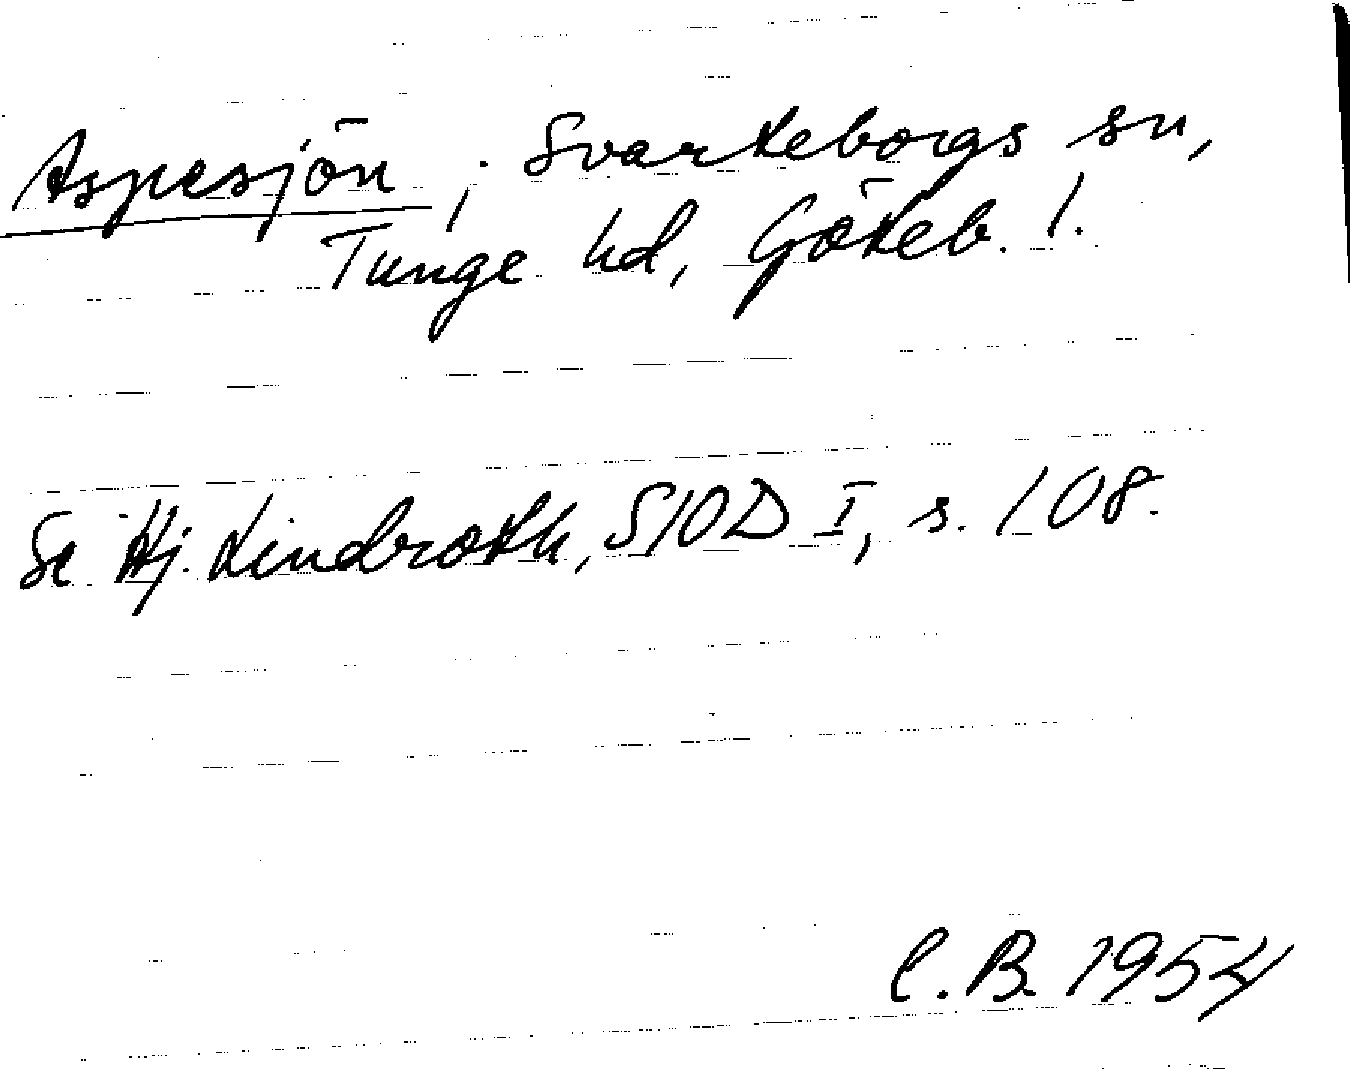 Aspesjön, i Svarteborgs sn,
Tunge hd, Göteb. l.
Se Hj. Lindroth, SIOD I, s. 108.
C. B. 1954